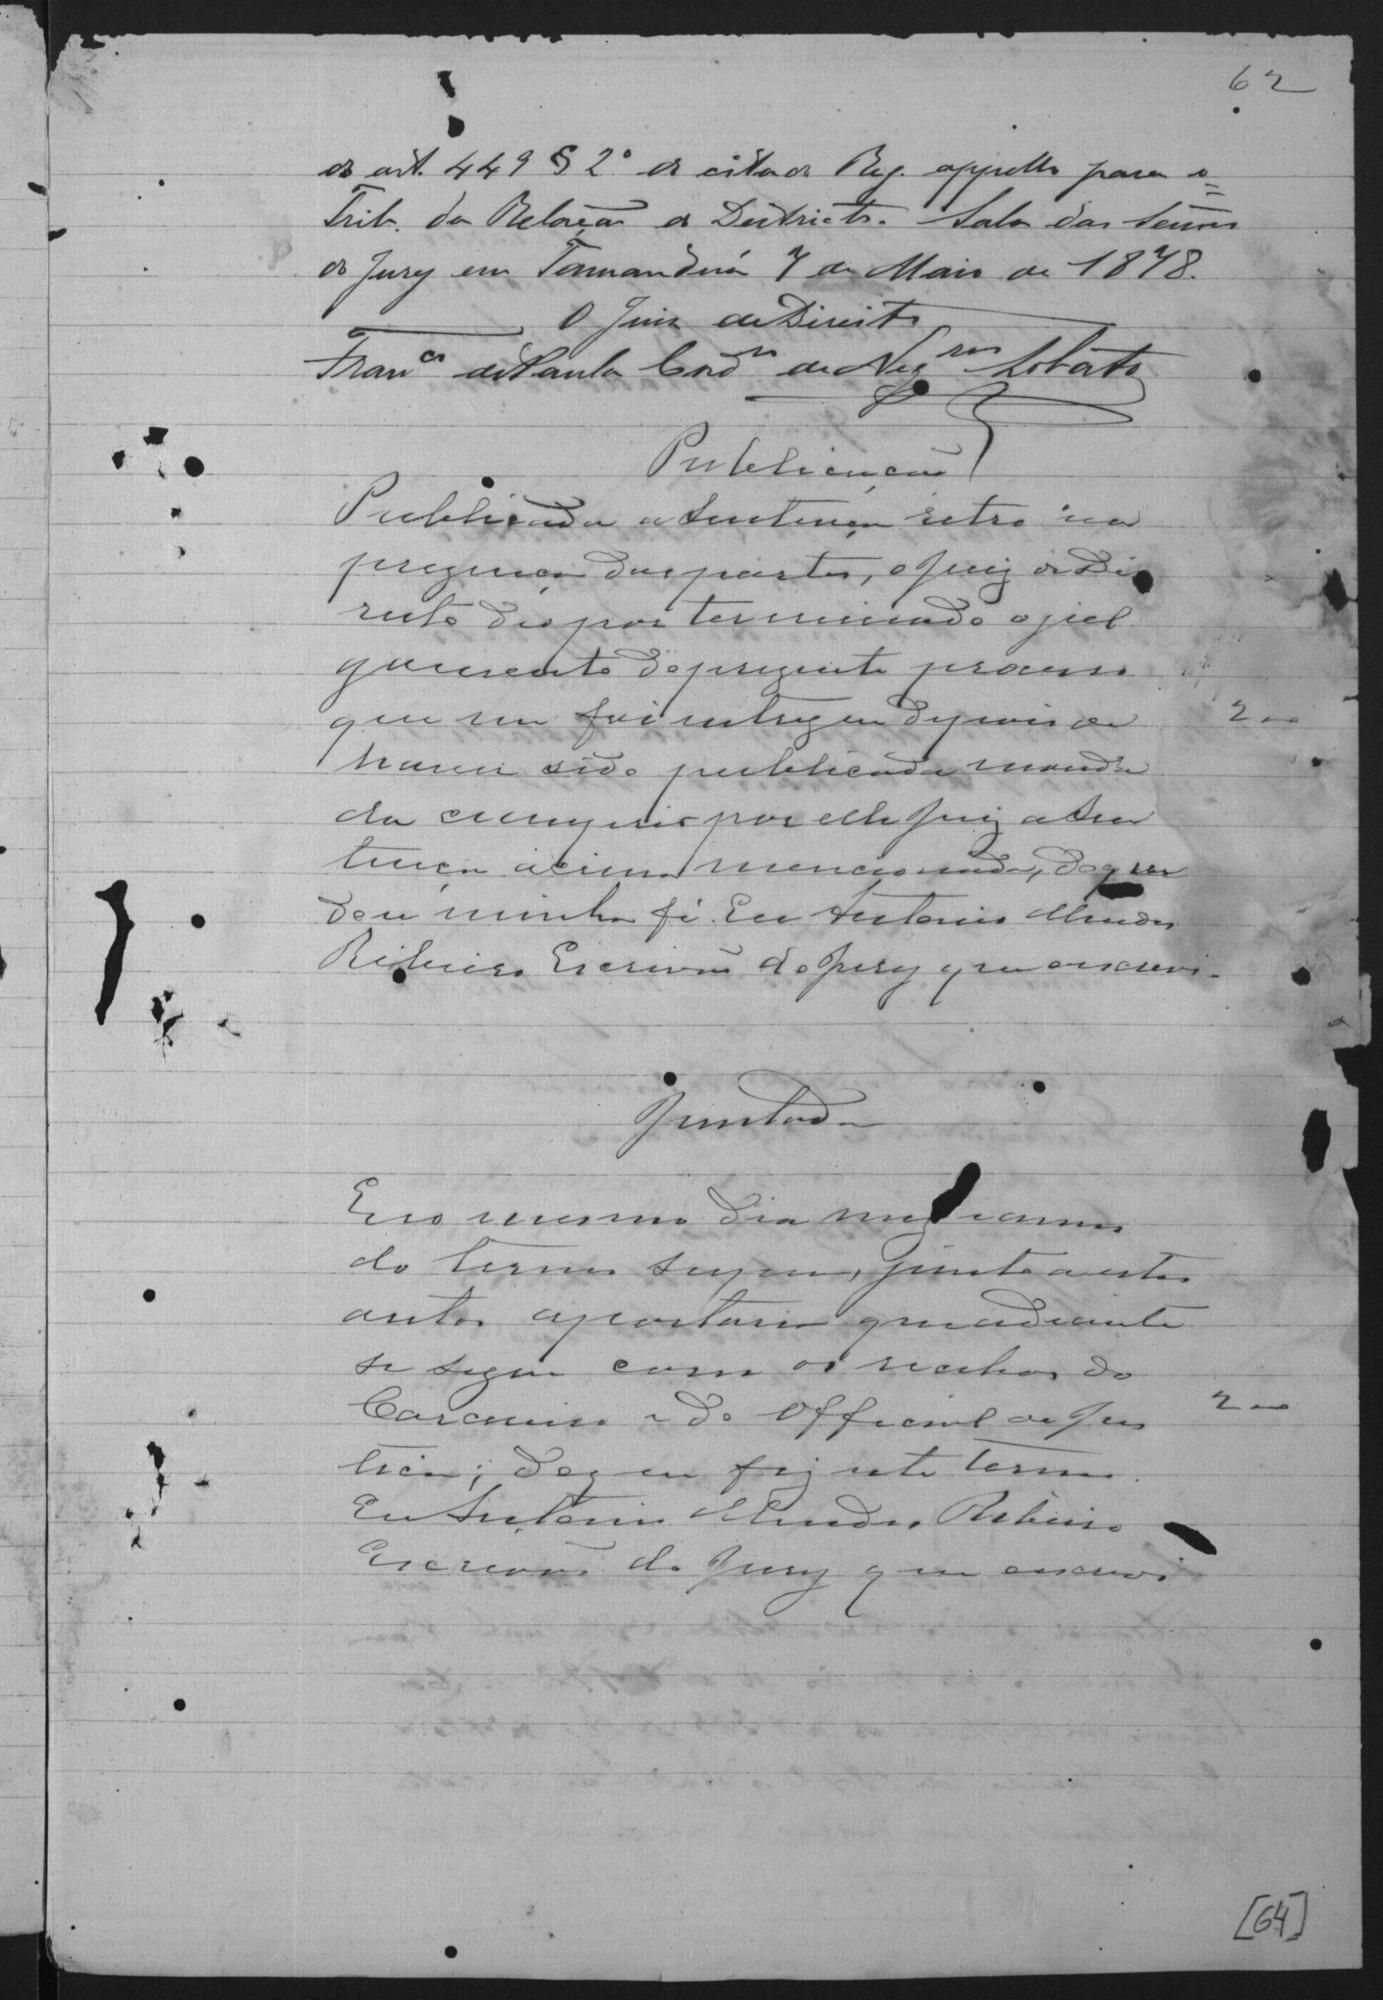 62
do art. 449 § 2º do citado Reg. appello para o
Trib. da Relação do Districto. Sala das Sessões
do Jury em Tamanduá 7 de Maio de 1878.
O Juiz de Direito
Franco de Paula Cord de Negros Lobato
Publicação
Publicada a Sentença retro na
prezença das partes, o Juiz de Di
reito deo por terminado o jul
gamento do prezente processo
que me foi entregue depois de 200
haver sido publicada manda
da cumprir por elle Juiz a Sen
tença acima mencionada, do que
dou minha fé. Eu Antonio Mendes
Ribeiro Escrivão do Jury que escrevi.
Juntada
E no mesmo dia mez e anno
do termo supra, junto a estes
autos a portaria que adiante
se segue com os recibos do
Carcereiro e do Official de Jus 200
tiça; do que fiz este termo.
Eu Antonio Mendes Ribeiro
Escrivão do Jury que escrevi
[64]